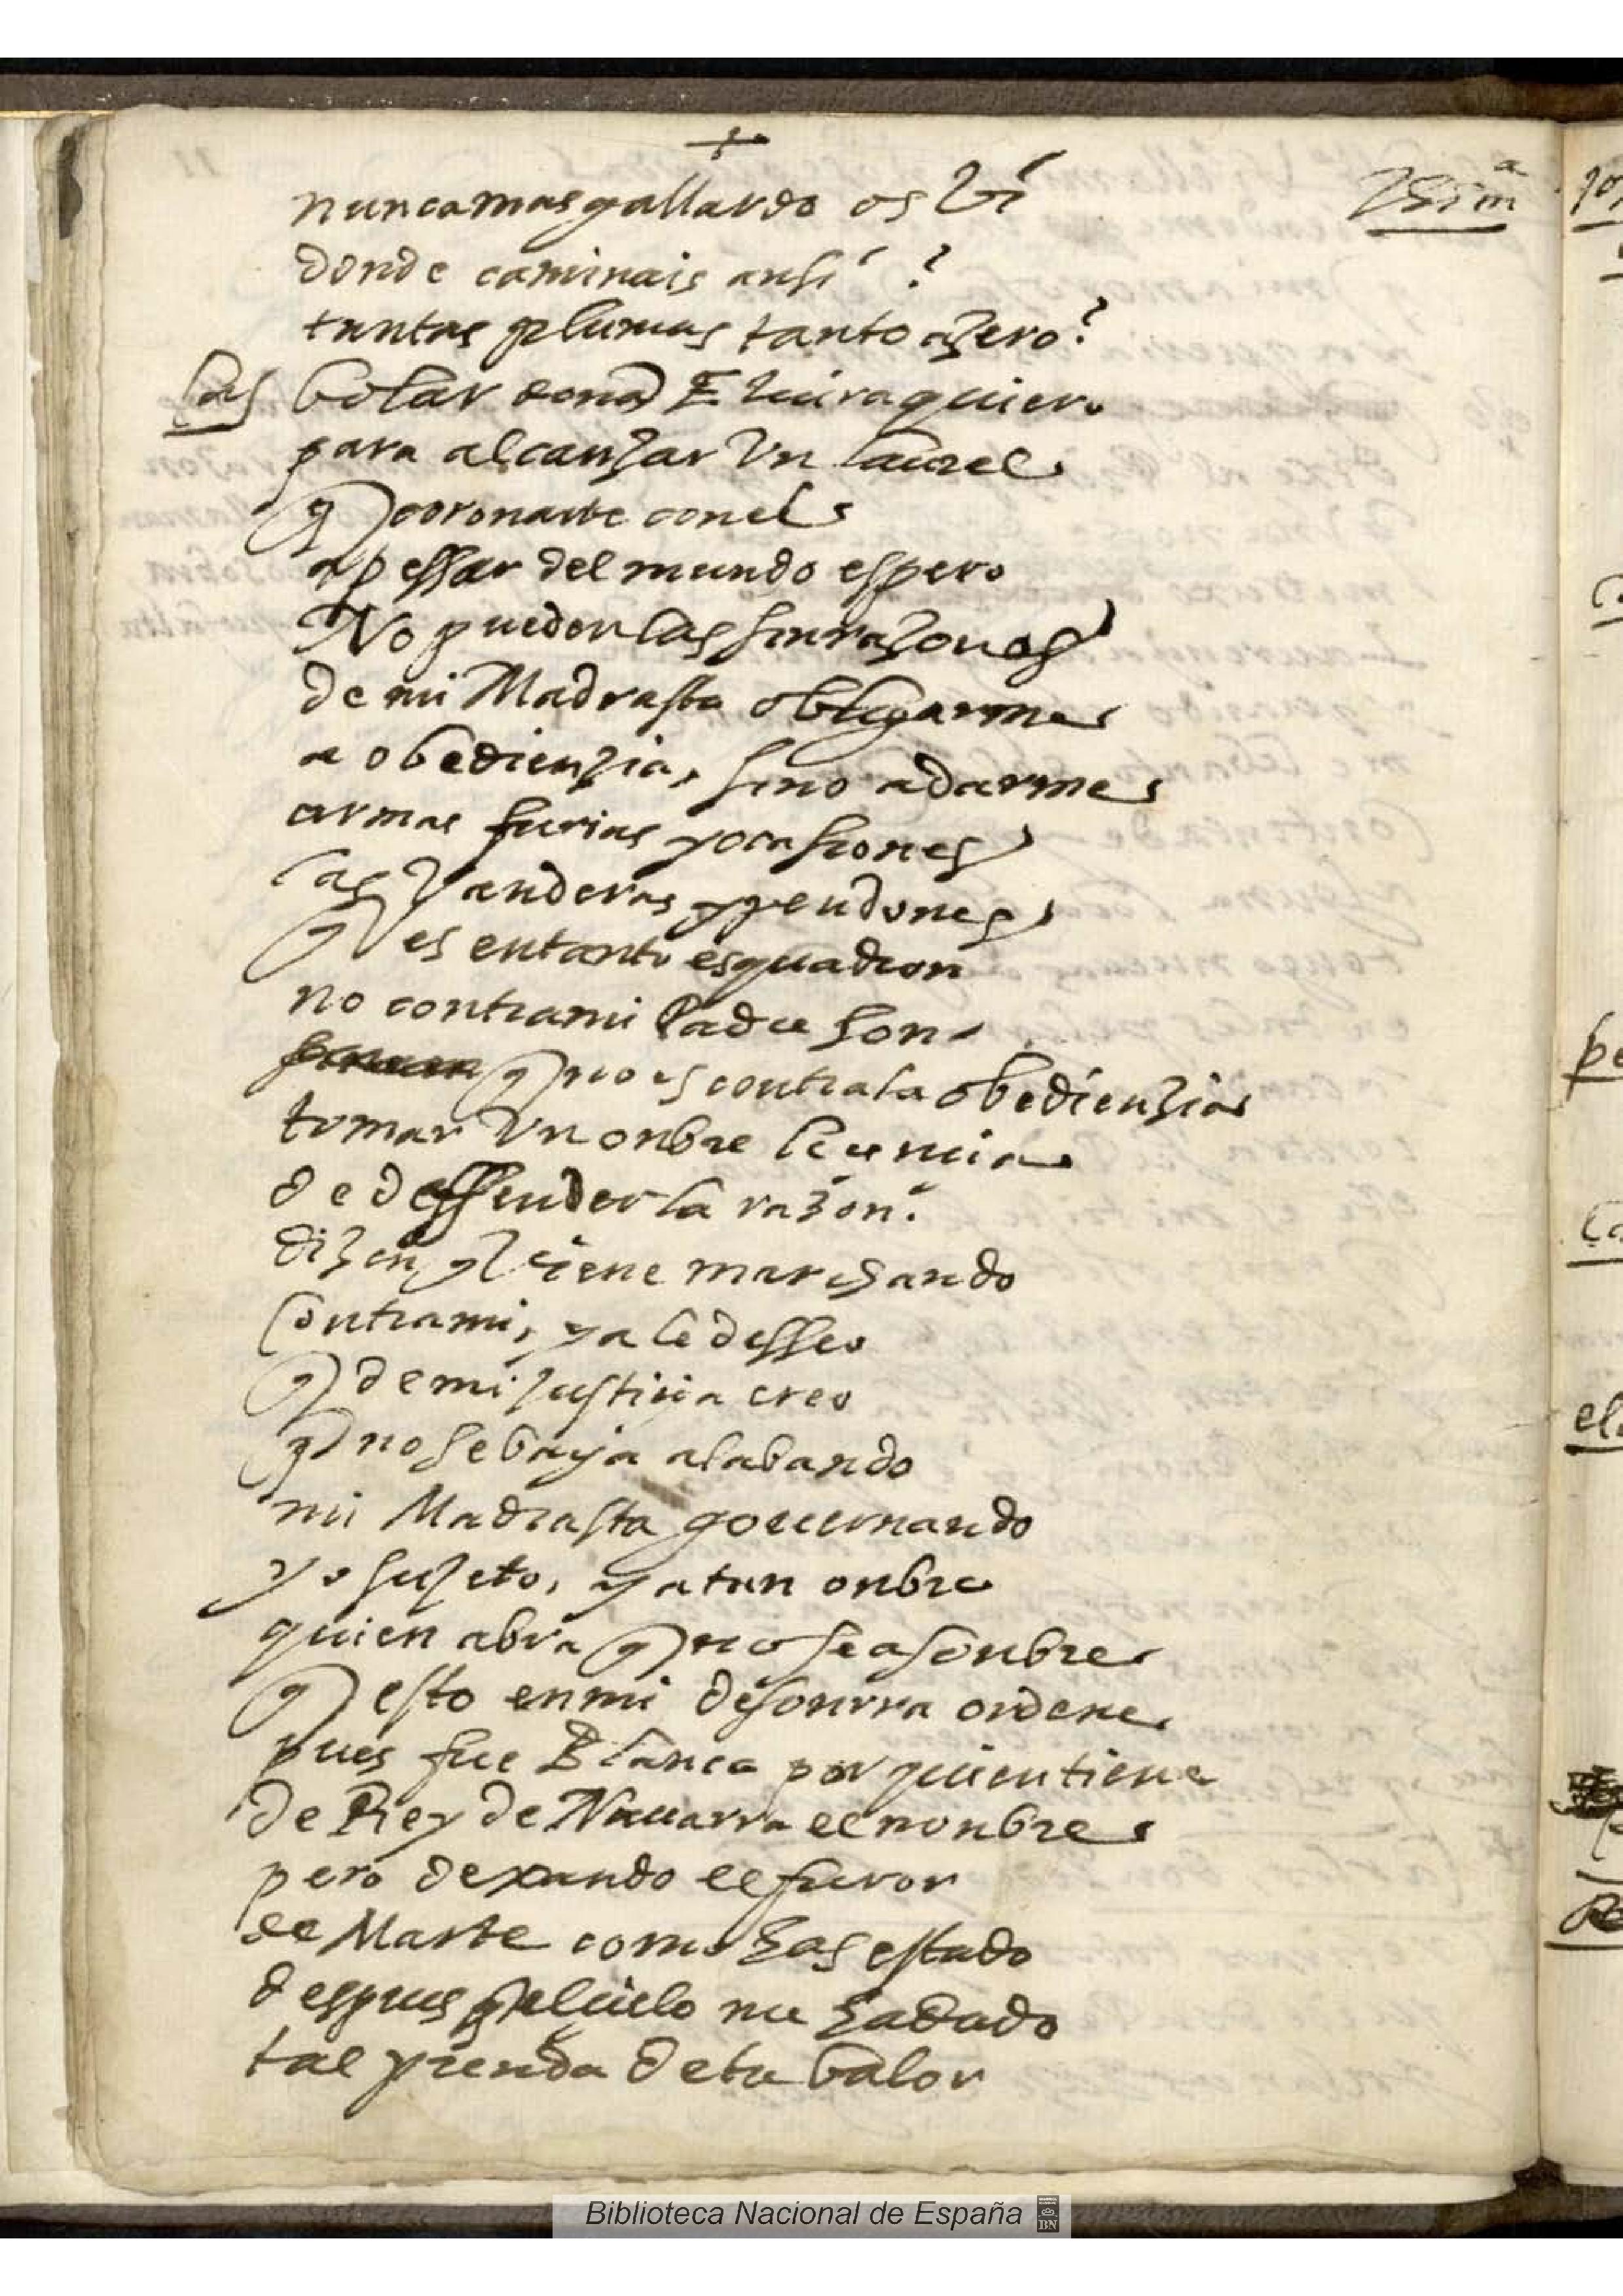 nunca mas gallardo os Vi
donde caminais ansi ?
tantas plumas tanto azero?
Cas Bolar dona Elvira quiero
para alcanzar Vn laurel
q coronarte con el
a pessar del mundo espero
No pueden las sinrazones
de mi Madrasta obligarme
a obedienzia, sino a darme
armas furias y ocasiones
las Vanderas y pendones
q Ves en tanto esquadron
no contra mi Padre son
q no es contra la obedienzia
tomar Vn onbre licencia
de deffender la razon.
dizen q Viene marchando
Contra mi, ya le desseo
q de mi Justicia creo
q no se baya alabando
mi Madrasta gouernando
yo sujeto, ya tan onbre
quien abra q no se asonbre
q esto en mi desonrra ordene
pues fue Blanca por quien tiene
de Rey de Nauarra el nonbre
pero dexando el furor
de Marte como has estado
despues q el cielo me ha dado
tal prenda de tu balor
Biblioteca Nacional de España
BN